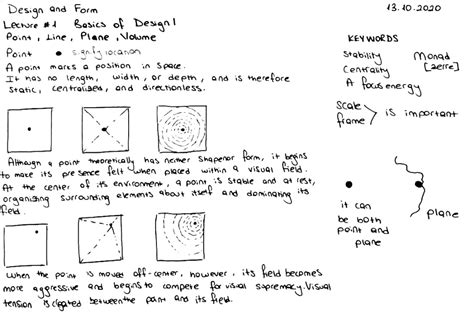 Design and Form
13.10.2020
Lecture #1 Basics of Design 1
Point, Line, Plane, Volume
Point • signify location
A point makes a position in space.
It has no length, width, or depth, and is therefore
static, centralised, and directionless.
KEYWORDS
Stability Monad
Centrality [zerre]
A focus energy
scale
frame
is important
Although a point theoretically has neither shape nor form, it begins
to make its presence felt when placed within a visual field.
At the center of its environment, a point is stable and at rest,
organising surrounding elements about itself and dominating its
field.
it can
be both
point and
plane
plane
When the point is moved off-center, however, its field becomes
more aggressive and begins to compete for visual supremacy. Visual
tension is created between the point and its field.